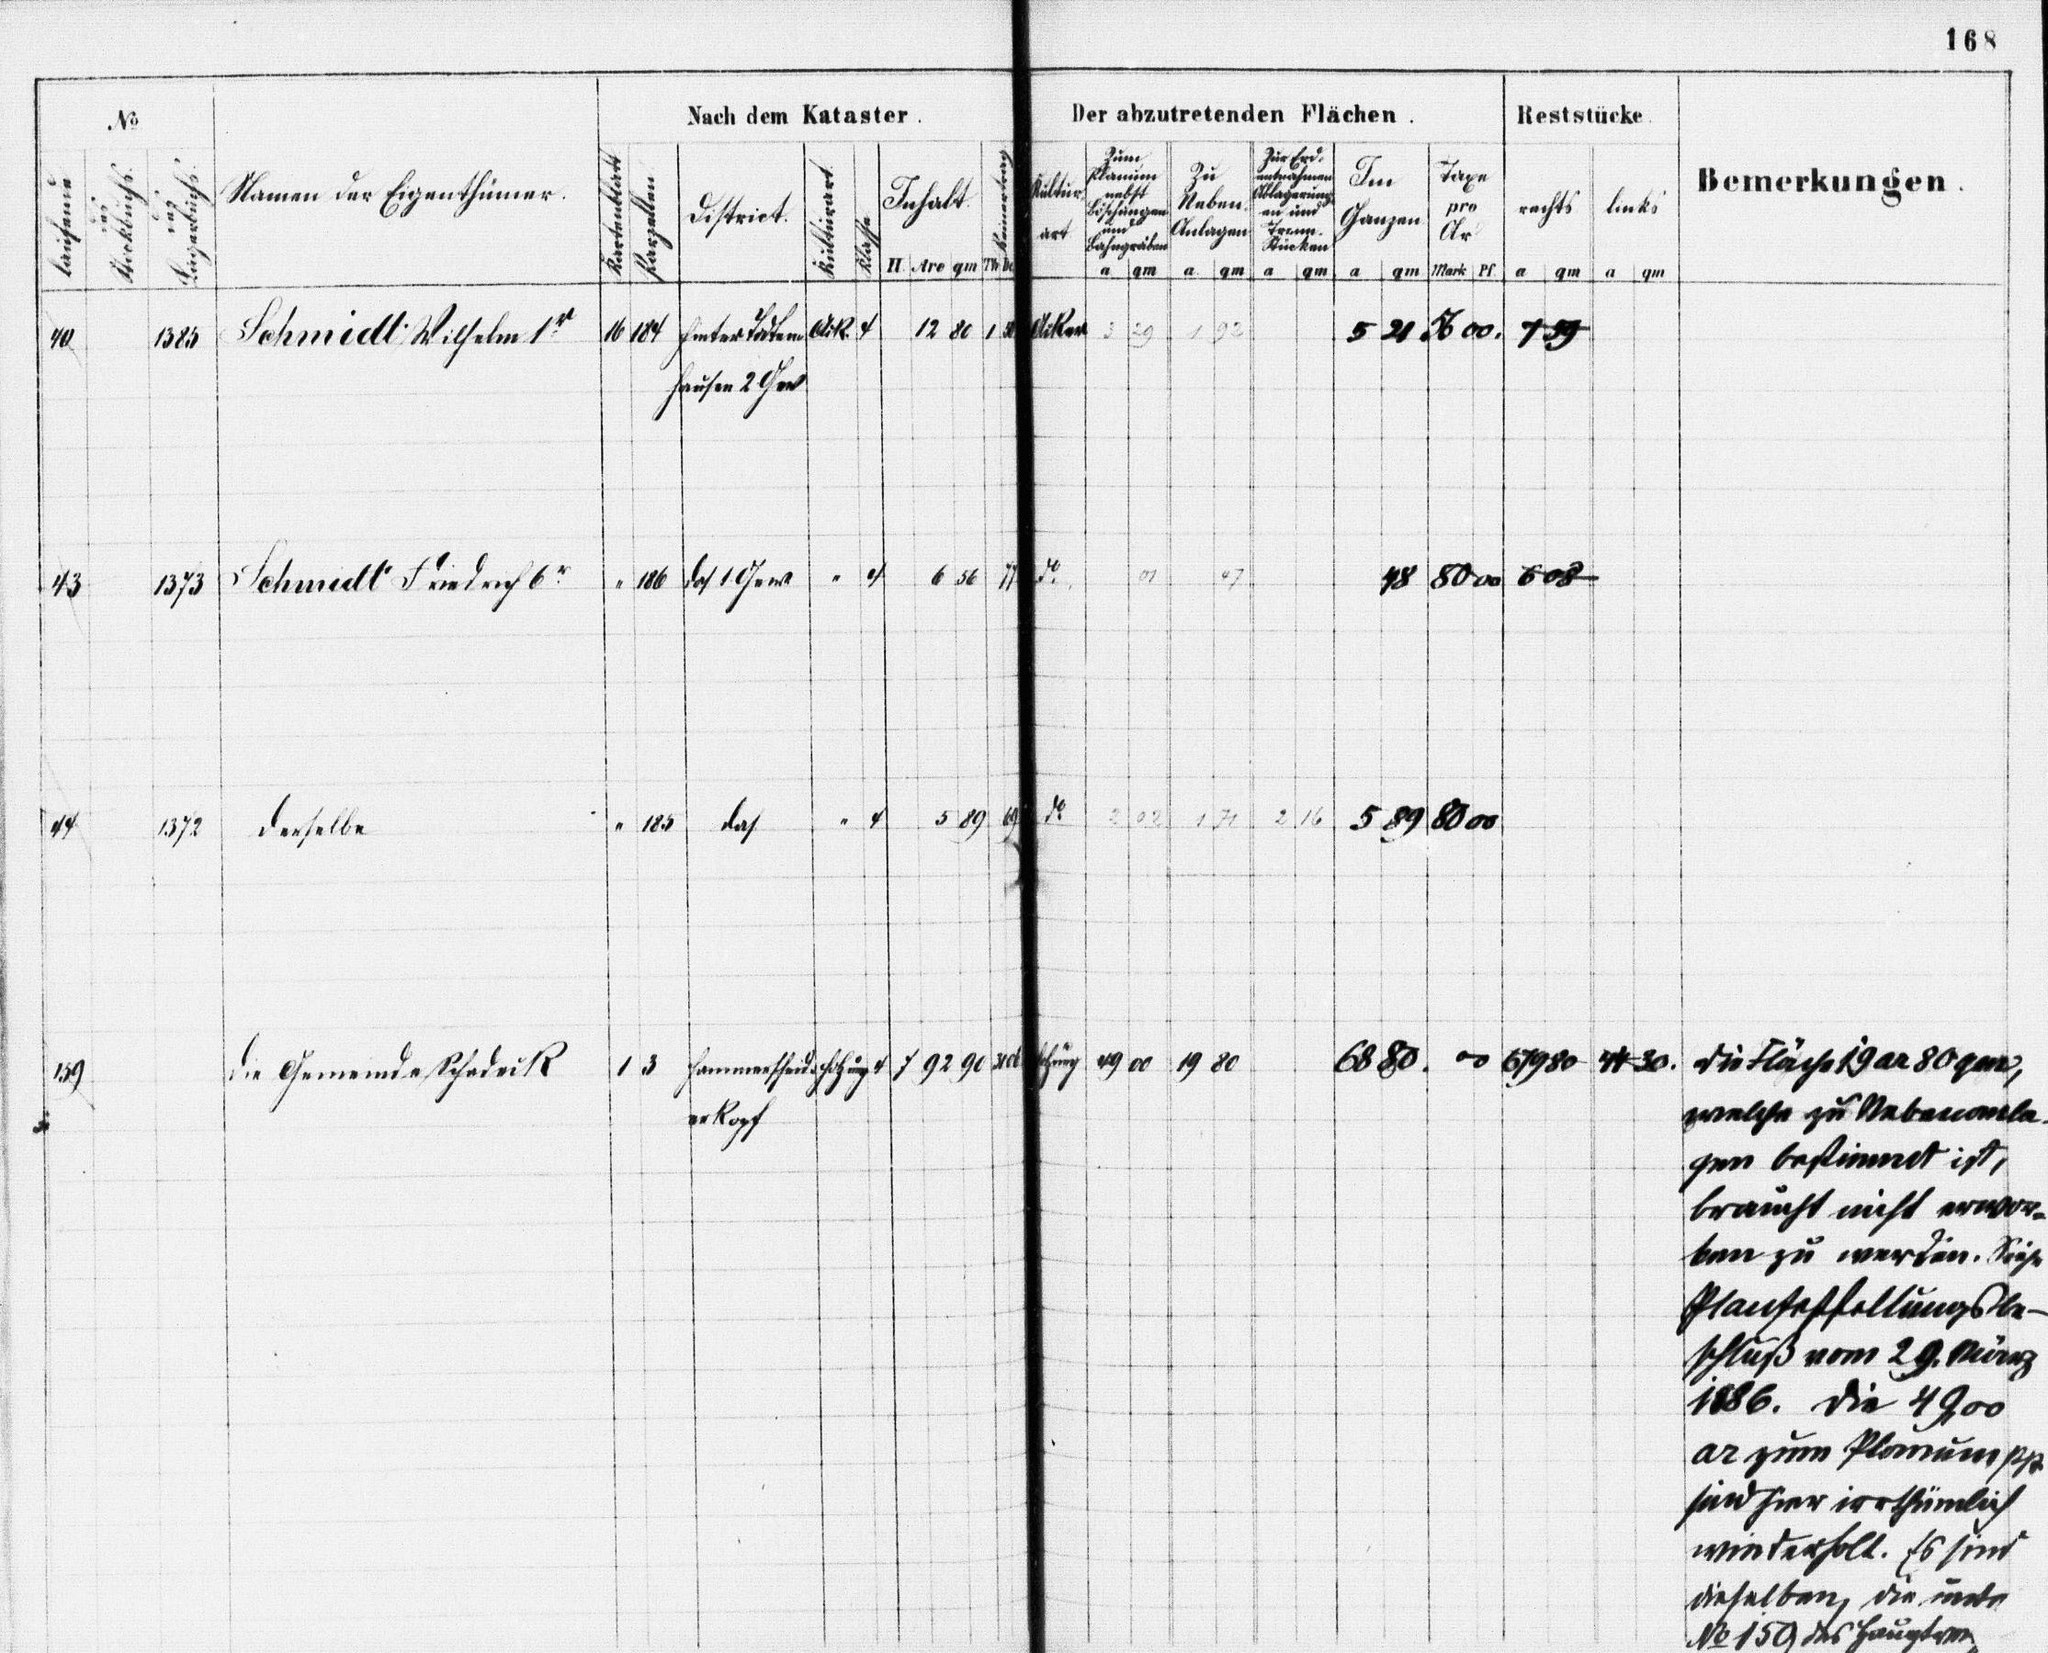 168
№ Nach dem Kataster. Der abzutretenden Flächen. Reststücke.
laufende des Stockbuchs. des Lagerbuchs. Namen der Eigenthümer. Kartenblatt Parzellen District. Kulturart Klasse Inhalt. Reinertrag Kultur Zum Zu Zur Erd- Im Taxe rechts links Bemerkungen.
art Planum Neben- entnahmen Ganzen pro
nebst Anlagen Ablagerung- Ar
Böschungen en und
und Trenn-
Bahngräben Stücken
H. Are qm Th. Dc a qm a qm a qm a qm Mark Pf. a qm a qm
40 1385 Schmidt Wilhelm 1r 16 184 hinter Acker 4 12 80 1 Acker 3 29 1 92 5 21 56 00. 7 59
hausen 2 Gew
43 1373 Schmidt Friedrich 6r " 186 das 1 Gew " 4 6 56 77 do. 01 47 48 80 00 6 08
44 1372 derselbe " 185 das " 4 5 89 69 do 2 02 1 71 2 16 5 89 80 00
159 die Gemeinde Schadeck 1 3 Hammerscheid- Holzung 4 7 92 90 Holzung 49 00 19 80 68 80. 00 679 80 44 30. die Fläche 19 ar 80 qm,
erkopf welche zu Nebenanla-
gen bestimmt ist,
braucht nicht erwor-
ben zu werden. Siehe
Planfeststellungsbe-
schluß vom 29. März
1886. Die 49,00
ar zum Planum pp
sind hier irrthümlich
wiederholt. Es sind
dieselben, die unter
№ 159 des